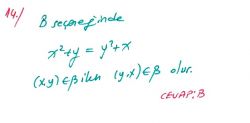 14./
B seçeneğinde
x²+y = y²+x
(x,y)∈β iken (y,x)∈β olur.
CEVAP:B